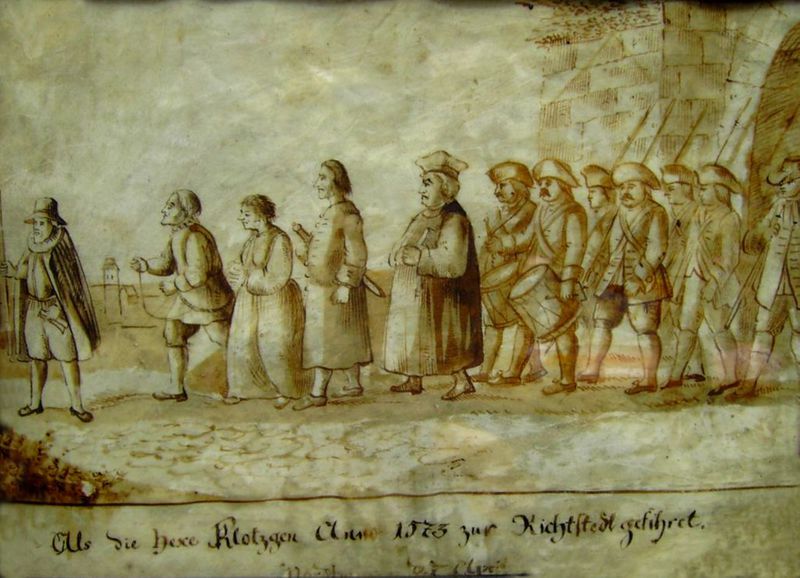 Als die Hexe Klotzgen Anno 1573 zur Richtstedt geführet.